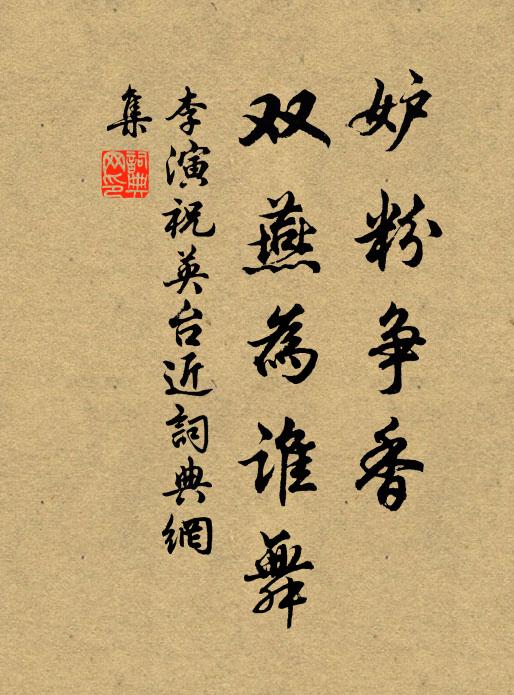 妒粉争香
双燕為谁舞
李演祝英台近詞典網
集
詞典网印